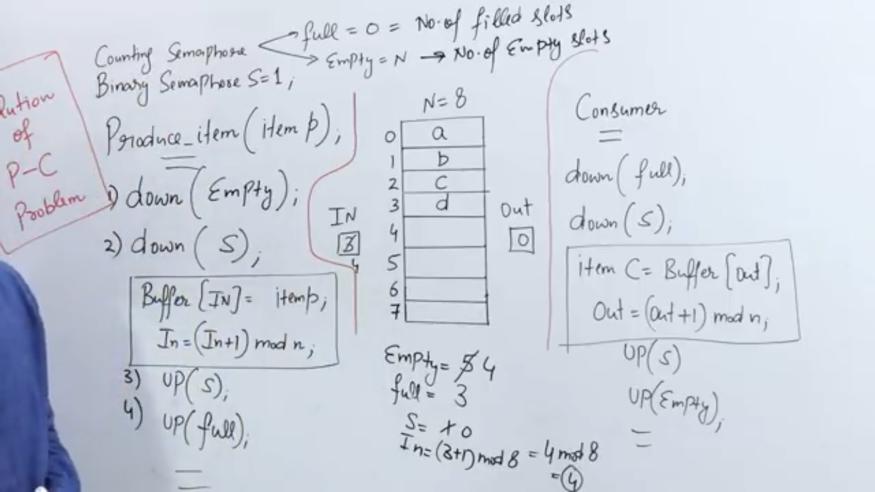 Counting Semaphore
full = 0 = No. of filled slots
Empty = N → No. of Empty slots
Binary Semaphore S=1;
lution
of
P-C
Problem
Produce_item(item p);
1) down(Empty);
2) down(S);
Buffer[IN] = itemp;
In = (In+1) mod n;
3) UP(S);
4) UP(full);
IN
3
4
N=8
0 a
1 b
2 c
3 d
4
5
6
7
Out
0
Empty = 5 4
full = 3
S = 1 0
In = (3+1) mod 8 = 4 mod 8
= 4
Consumer
down(full);
down(S);
item C = Buffer[out];
Out = (out+1) mod n;
UP(S)
UP(Empty);